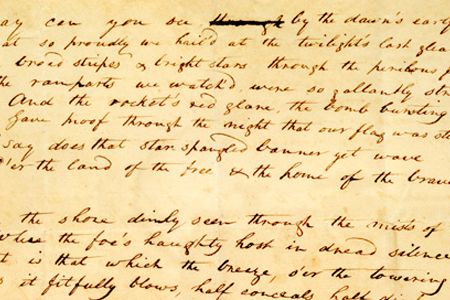 ay can you see ~~through~~ by the dawn's earl
at so proudly we hail'd at the twilight's last glea
broad stripes & bright stars through the perilous f
the ramparts we watch'd, were so gallantly str
And the rocket's red glare, the bomb bursting
Gave proof through the night that our flag was sti
say does that star spangled banner yet wave
O'er the land of the free & the home of the brave
the shore dimly seen through the mists of
the foe's haughty host in dread silence
t is that which the breeze, o'er the towering
it fitfully blows, half conceals, half